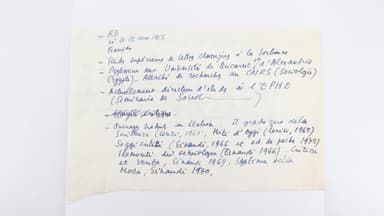 - RB
né le 12 nov 1915
Français
- Etudes supérieures de lettres classiques à la Sorbonne
- Professeur aux Universités de Bucarest et d'Alexandrie
(Egypte). Attaché de recherches au CNRS (Sociologie)
- Actuellement directeur d'études à l'EPHE
(Séminaire de Sociol
- Ouvrages traduits en italien Il grado zero della
Scrittura (Lerici, 1961, Miti d'Oggi (Lerici, 1962)
Saggi critici (Einaudi, 1966 et ed. de poche 1972)
Elementi di semiologia (Einaudi 1966). Critica
e verità, Einaudi 1969. Sistema della
Moda, Einaudi 1970.